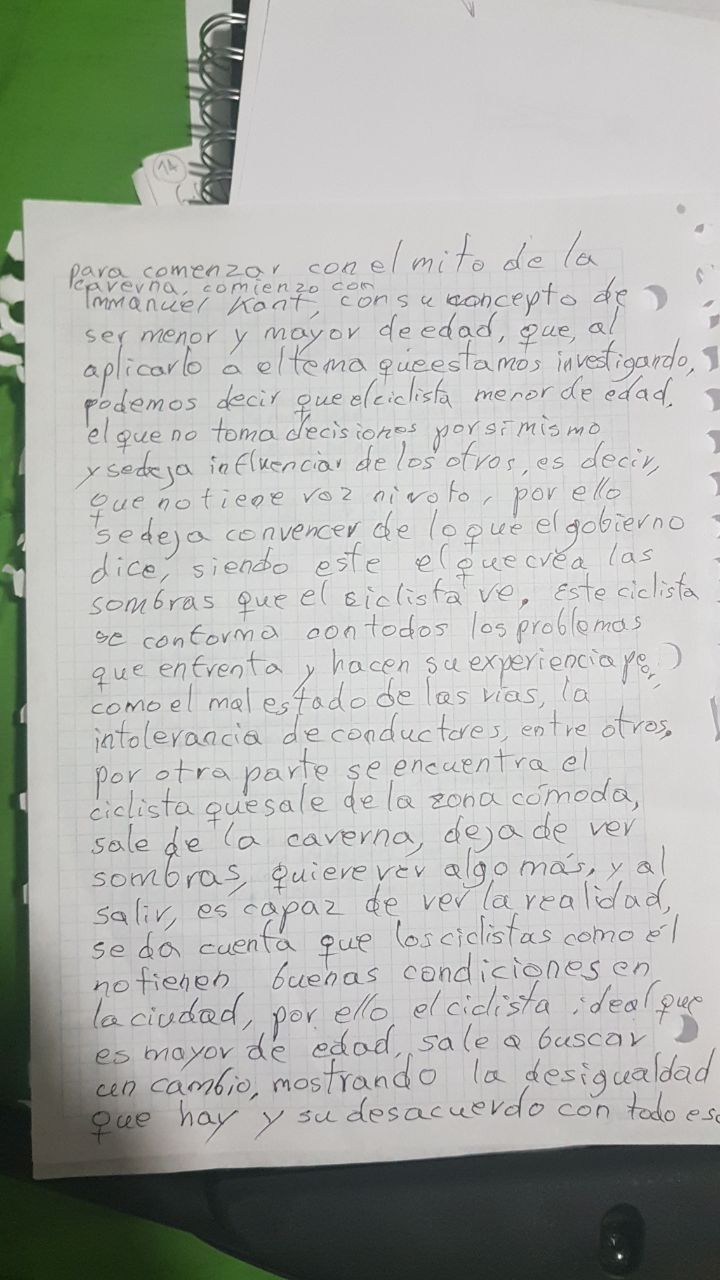 14
para comenzar con el mito de la
caverna, comienzo con
Immanuel Kant, con su concepto de
ser menor y mayor de edad, que, al
aplicarlo a el tema que estamos investigando,
podemos decir que el ciclista menor de edad,
el que no toma decisiones por si mismo
y se deja influenciar de los otros, es decir,
que no tiene voz ni voto, por ello
se deja convencer de lo que el gobierno
dice, siendo este el que crea las
sombras que el siclista ve. Este ciclista
se conforma con todos los problemas
que enfrenta y hacen su experiencia
como el mal estado de las vias, la
intolerancia de conductores, entre otros.
por otra parte se encuentra el
ciclista que sale de la zona cómoda,
sale de la caverna, deja de ver
sombras, quiere ver algo más, y al
salir, es capaz de ver la realidad,
se da cuenta que los ciclistas como él
no tienen buenas condiciones en
la ciudad, por ello el ciclista ideal que
es mayor de edad, sale a buscar
un cambio, mostrando la desigualdad
que hay y su desacuerdo con todo